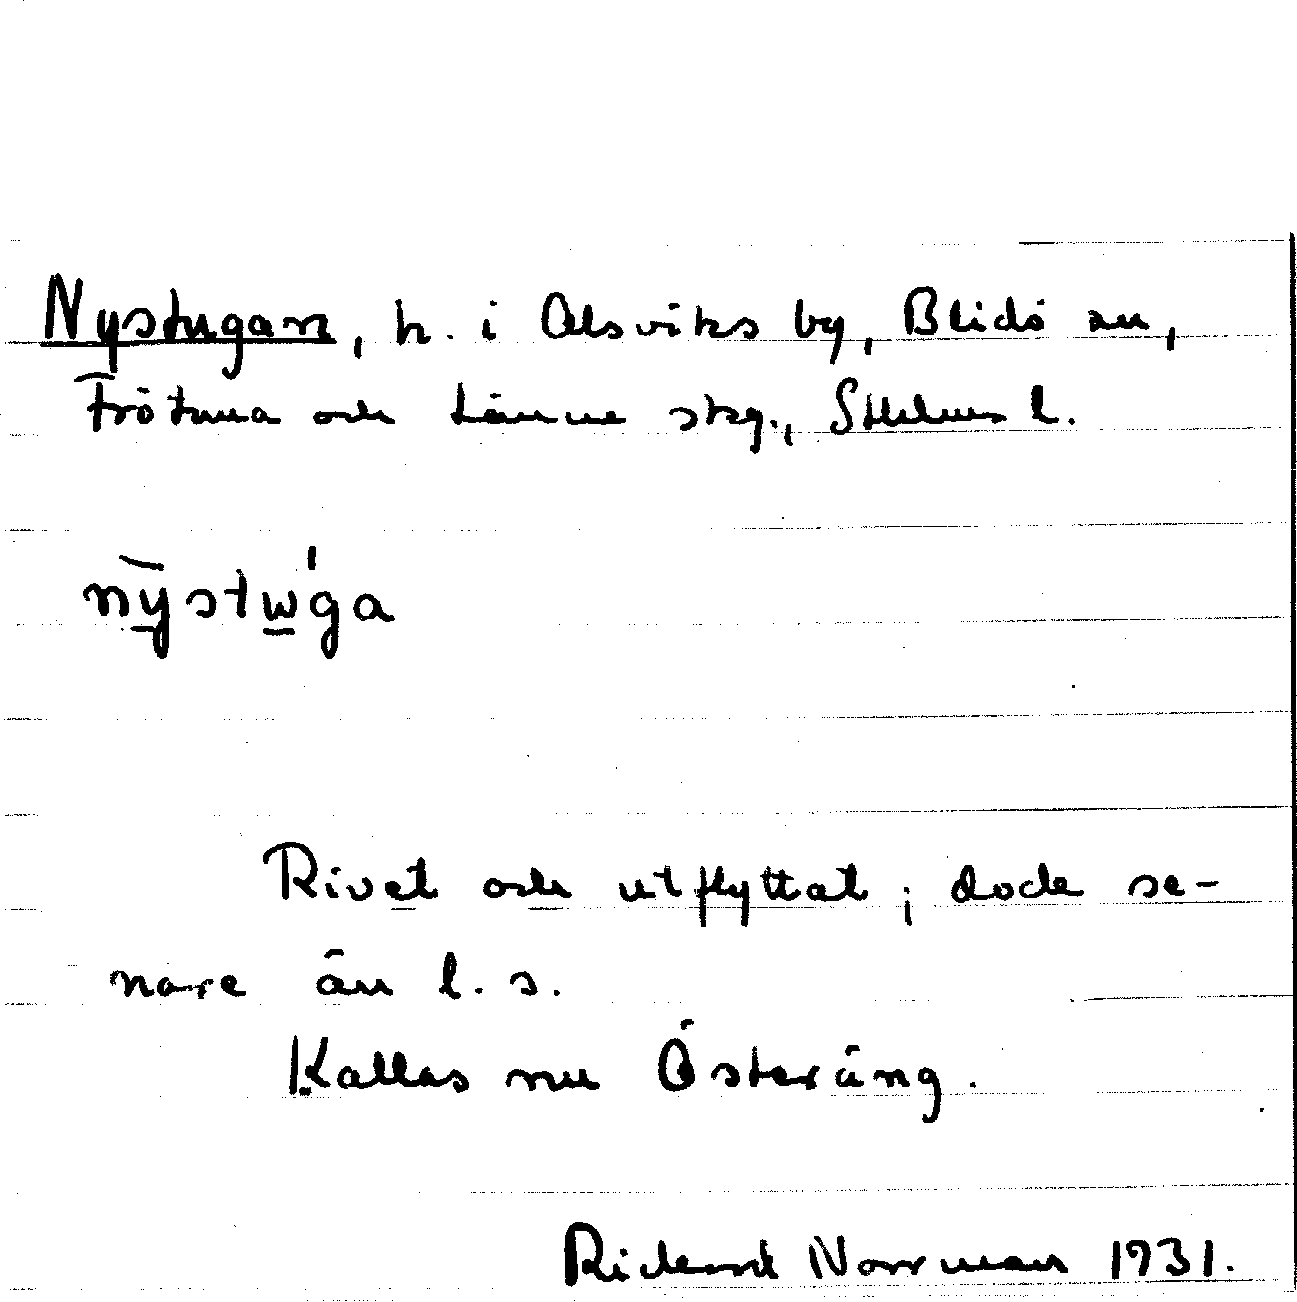 Nystugan, h. i Alsviks by, Blidö sn,
Frötuna och Länna skg., Sthlms l.
nȳstẁ́ga
Rivet och utflyttat; dock se-
nare än l. s.
Kallas nu Österäng.
Rickard Norrman 1931.